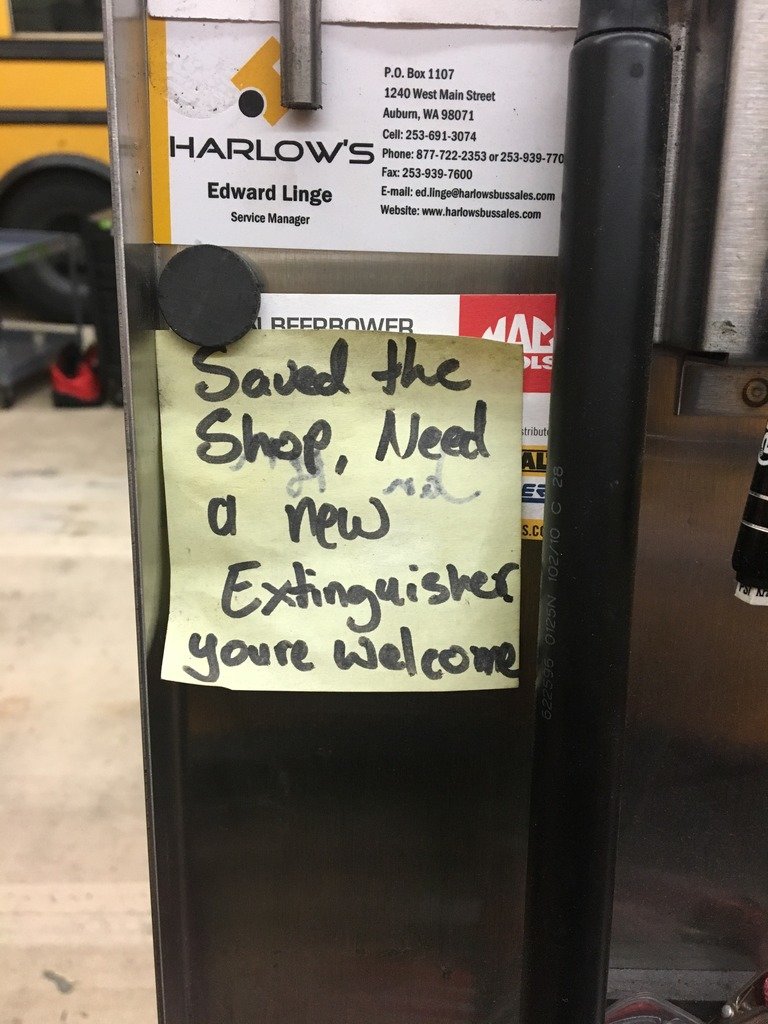 HARLOW'S
Edward Linge
Service Manager
P.O. Box 1107
1240 West Main Street
Auburn, WA 98071
Cell: 253-691-3074
Phone: 877-722-2353 or 253-939-770
Fax: 253-939-7600
E-mail: ed.linge@harlowsbussales.com
Website: www.harlowsbussales.com
BEERBOWER
MAC
OLS
stribute
AL
ER
S.CO
Saved the
Shop, Need
a new
Extinguisher
youre welcome
622596 0125N 102/10 C 28